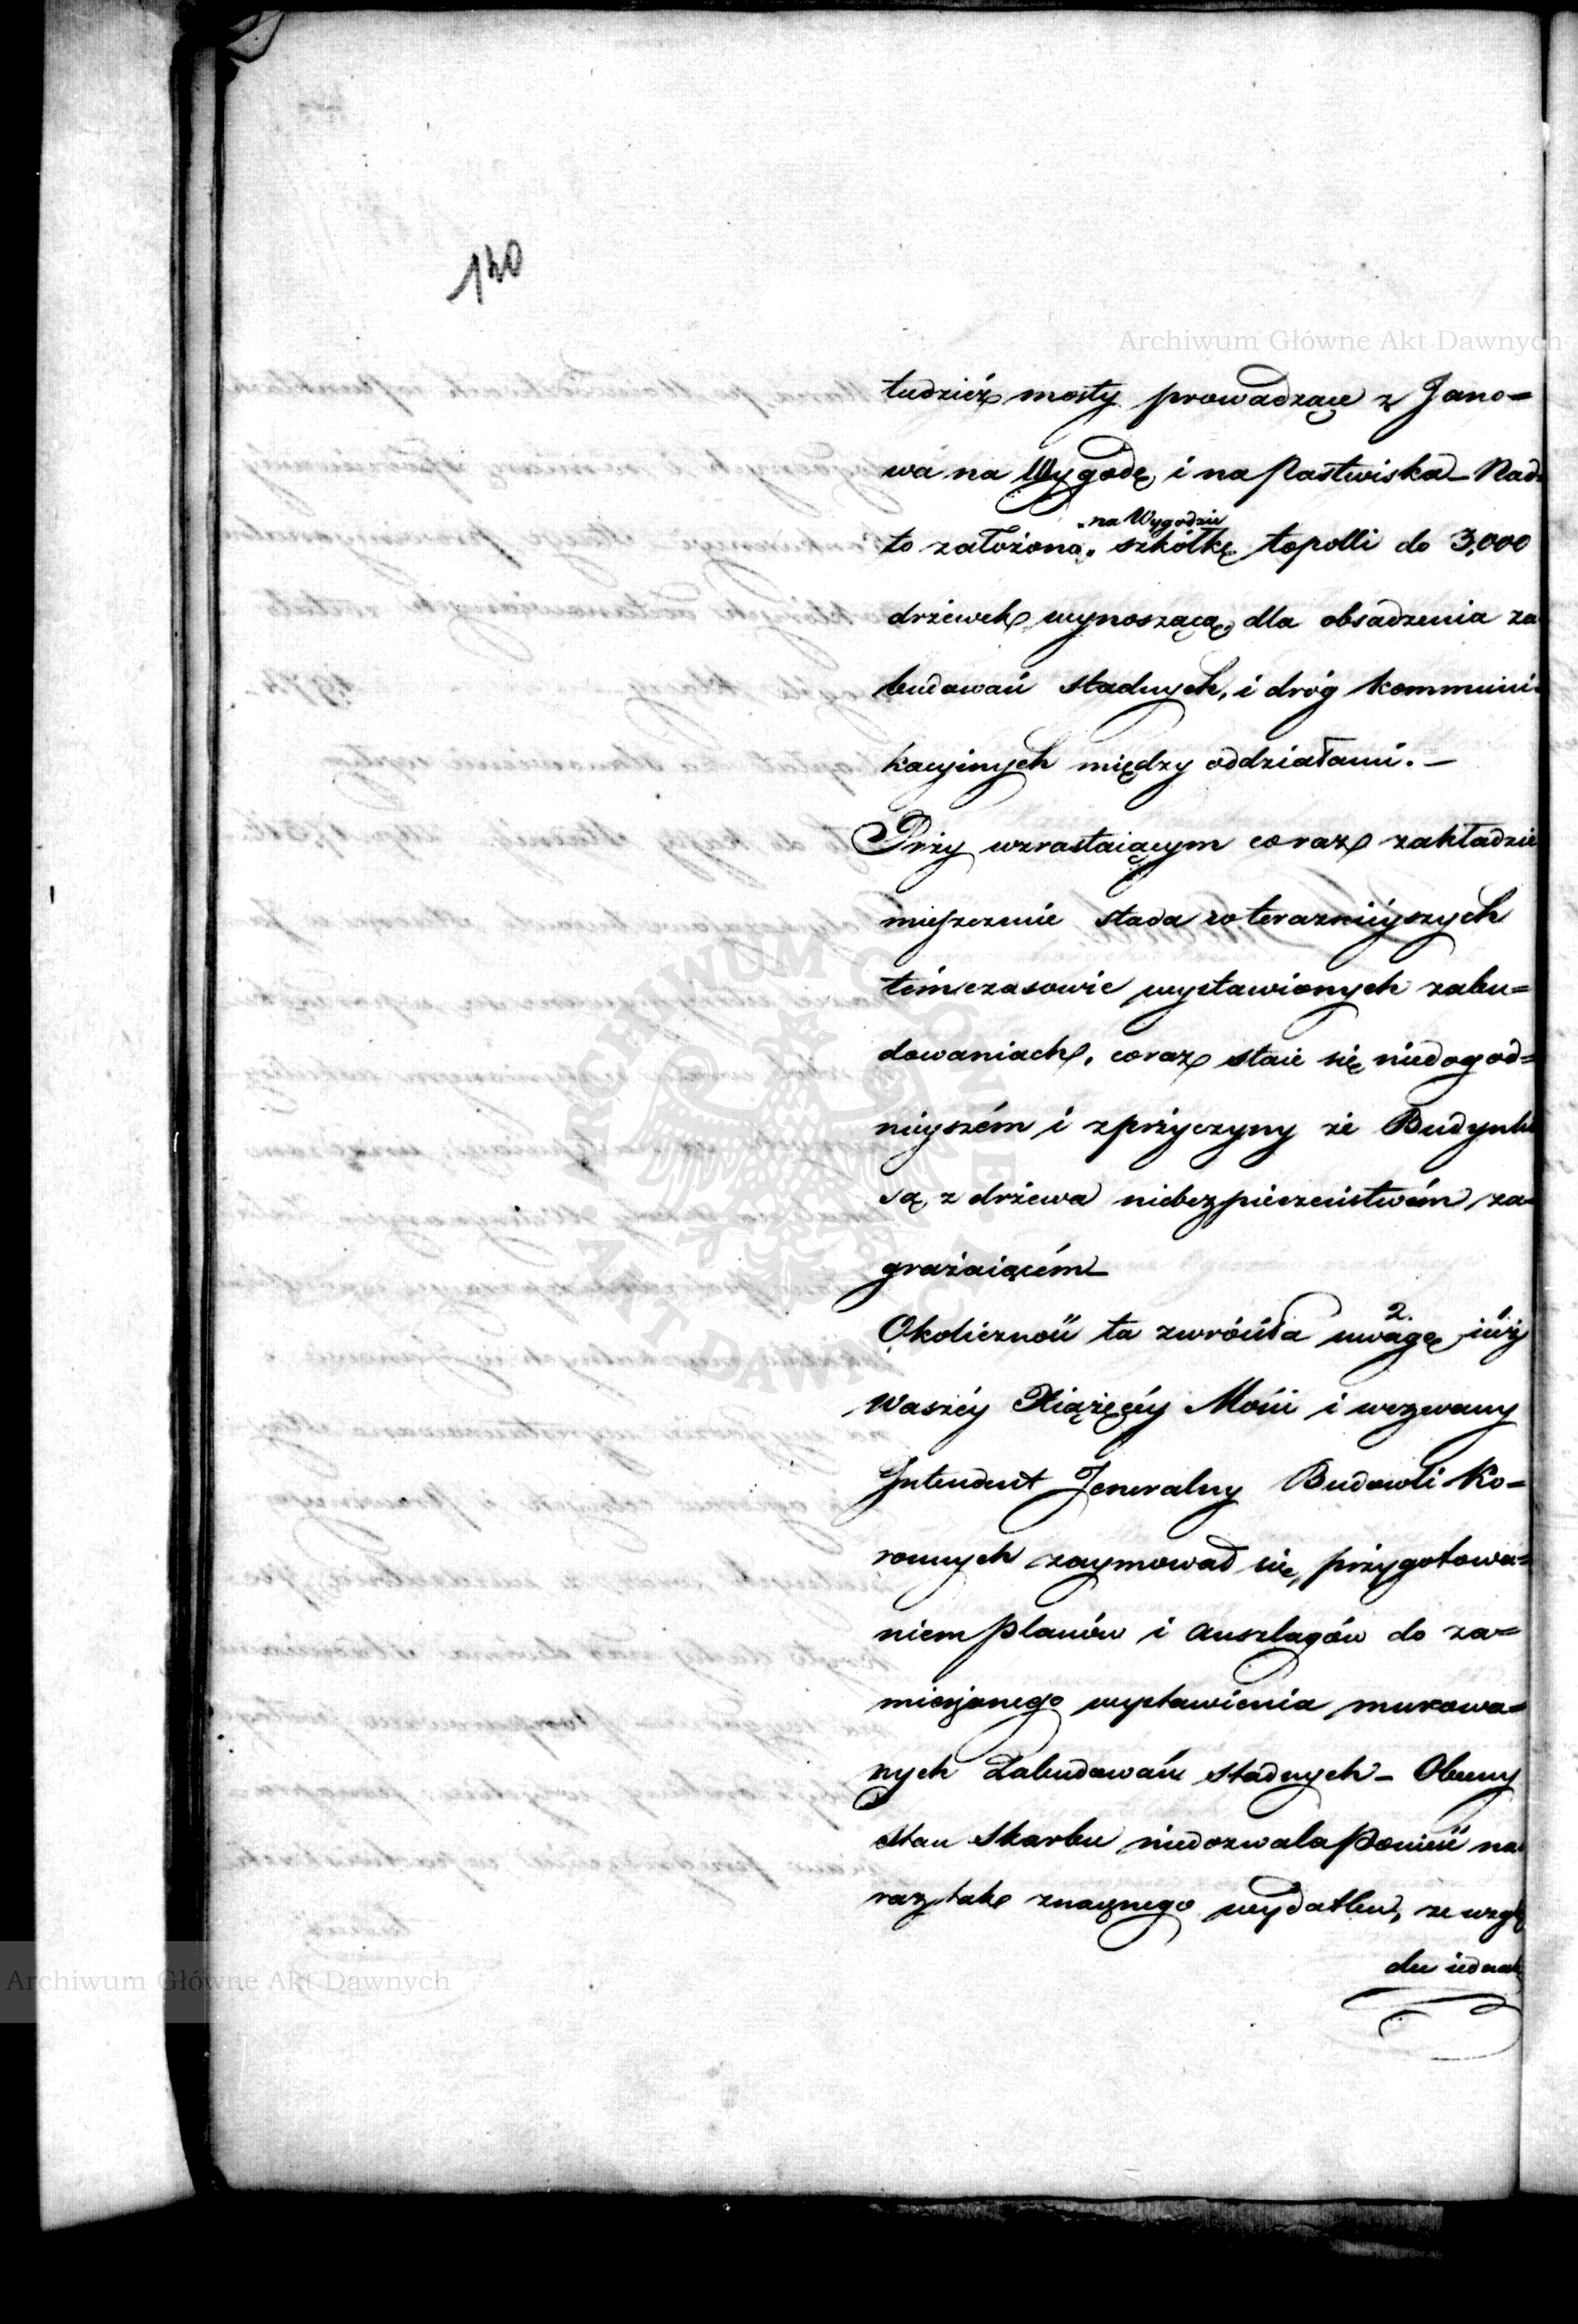 140
Archiwum Główne Akt Dawnych
tudzież mosty prowadzące z Jano=
wa na Wygodę i na Pastwiska – Nad=
na Wygodzie
to założoną szkółkę topolli do 3,000
drzewek wynoszącą, dla obsadzenia za
budowań stadnych, i dróg kommuni=
kacyinych między oddziałami. –
Przy wzrastaiącym coraz zakładzie
mieszczenie stada w teraznieyszych
témczasowie wystawionych zabu=
dowaniach, coraz staie się niedogod=
nieyszém i zprzyczyny że Budynki
są z drzewa niebezpieczeństwém za=
grażaiącém –
2.
Okoliczność ta zwróciła uwagę iuż
Waszéy Xiążęcéy Mości i wezwany
Intendent Jeneralny Budowli Ko=
ronnych zaymował się przygotowa=
niem planów i anszlagów do za=
mierzonego wystawienia murowa=
nych Zabudowań stadnych – Obecny
stan Skarbu niedozwala ponieść na
raz tak znacznego wydatku, ze wzglę
du iednak
ARCHIWUM GŁÓWNE AKT DAWNYCH
Archiwum Główne Akt Dawnych